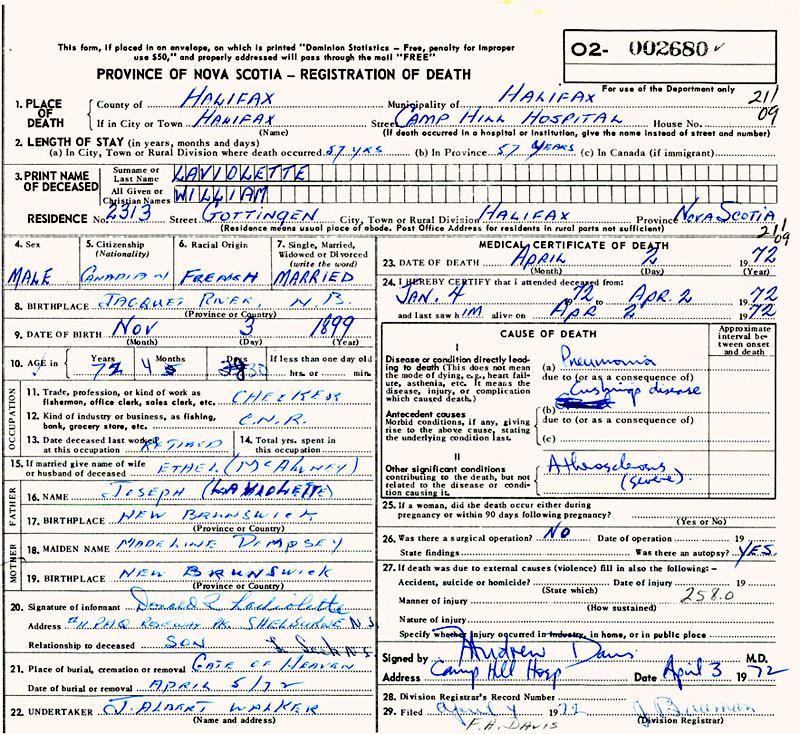 This form, if placed in an envelope, on which is printed "Dominion Statistics — Free, penalty for improper
use $50," and properly addressed will pass through the mail "FREE"
O2- 002680
PROVINCE OF NOVA SCOTIA — REGISTRATION OF DEATH
For use of the Department only
211
09
1. PLACE OF DEATH
County of HALIFAX Municipality of HALIFAX
If in City or Town HALIFAX Street CAMP HILL HOSPITAL House No.
(Name) (If death occurred in a hospital or institution, give the name instead of street and number)
2. LENGTH OF STAY (in years, months and days)
(a) In City, Town or Rural Division where death occurred 57 YRS (b) In Province 57 YEARS (c) In Canada (if immigrant)
3. PRINT NAME OF DECEASED
Surname or Last Name LAVIOLETTE
All Given or Christian Names WILLIAM
RESIDENCE No. 2313 Street GOTTINGEN City, Town or Rural Division HALIFAX Province NOVA SCOTIA
(Residence means usual place of abode. Post Office Address for residents in rural parts not sufficient)
211
09
4. Sex
MALE
5. Citizenship (Nationality)
CANADIAN
6. Racial Origin
FRENCH
7. Single, Married, Widowed or Divorced (write the word)
MARRIED
8. BIRTHPLACE JACQUET RIVER, N.B.
(Province or Country)
9. DATE OF BIRTH NOV 3 1899
(Month) (Day) (Year)
10. AGE in Years Months Days If less than one day old
72 4 hrs. or min.
OCCUPATION
11. Trade, profession, or kind of work as fisherman, office clerk, sales clerk, etc. CHECKER
12. Kind of industry or business, as fishing, bank, grocery store, etc. C.N.R.
13. Date deceased last worked at this occupation RETIRED
14. Total yrs. spent in this occupation
15. If married give name of wife or husband of deceased ETHEL
FATHER
16. NAME JOSEPH (LAVIOLETTE)
17. BIRTHPLACE NEW BRUNSWICK
(Province or Country)
MOTHER
18. MAIDEN NAME MADELINE DEMPSEY
19. BIRTHPLACE NEW BRUNSWICK
(Province or Country)
20. Signature of informant Donald R Laviolette
Address SHELBURNE N.S.
Relationship to deceased SON
21. Place of burial, cremation or removal GATE OF HEAVEN
Date of burial or removal APRIL 5/72
22. UNDERTAKER J. ALBERT WALKER
(Name and address)
MEDICAL CERTIFICATE OF DEATH
23. DATE OF DEATH APRIL 2 1972
(Month) (Day) (Year)
24. I HEREBY CERTIFY that I attended deceased from:
JAN. 4 1972 to APR. 2 1972
and last saw hIM alive on APR 2 1972
CAUSE OF DEATH
Approximate interval between onset and death
I
Disease or condition directly leading to death (This does not mean the mode of dying, e.g., heart failure, asthenia, etc. It means the disease, injury, or complication which caused death.)
(a) Pneumonia
due to (or as a consequence of)
Cushings disease
Antecedent causes
Morbid conditions, if any, giving rise to the above cause, stating the underlying condition last.
(b)
due to (or as a consequence of)
(c)
II
Other significant conditions contributing to the death, but not related to the disease or condition causing it.
Atherosclerosis
(severe)
25. If a woman, did the death occur either during pregnancy or within 90 days following pregnancy?
(Yes or No)
26. Was there a surgical operation? NO Date of operation 19
State findings Was there an autopsy? YES.
27. If death was due to external causes (violence) fill in also the following: —
Accident, suicide or homicide? Date of injury 19
(State which)
Manner of injury 258.0
(How sustained)
Nature of injury
Specify whether injury occurred in industry, in home, or in public place
Signed by Andrew Davis M.D.
Address Camp Hill Hosp Date April 3 1972
28. Division Registrar's Record Number
29. Filed April 4 1972
F.A. DAVIS (Division Registrar)